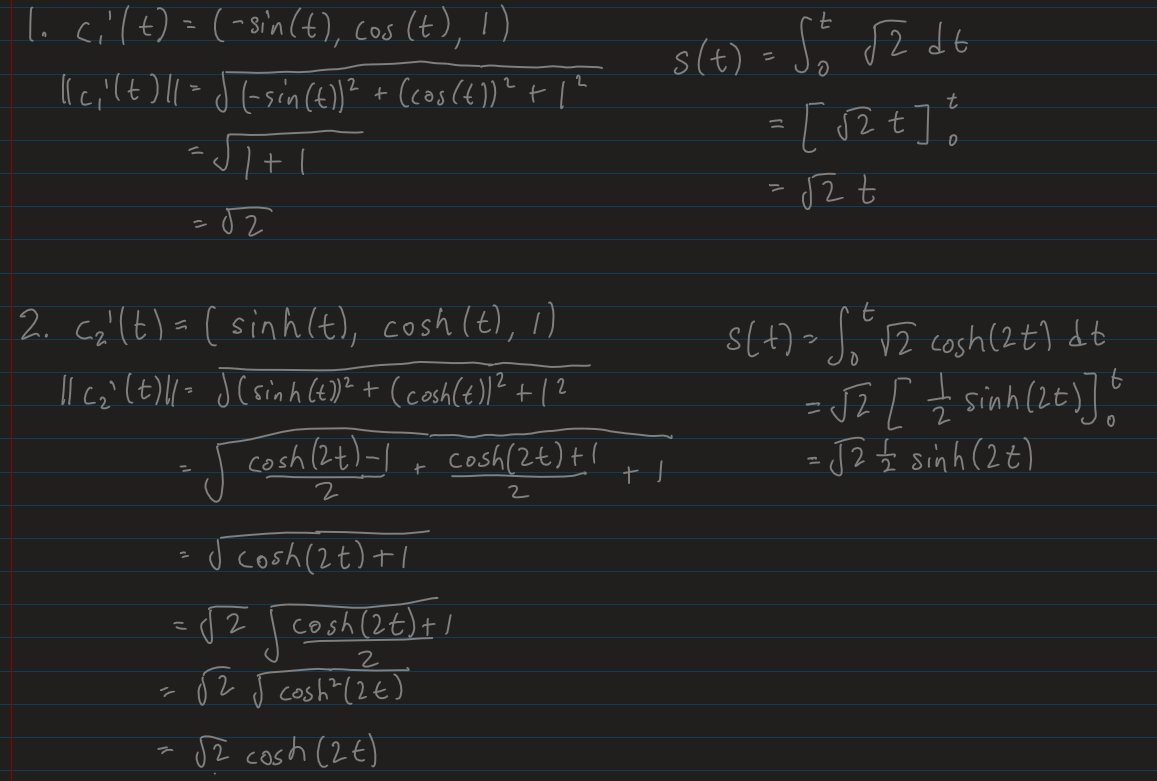 1. c₁'(t) = (-sin(t), cos(t), 1)
||c₁'(t)|| = √((-sin(t))² + (cos(t))² + 1²)
= √(1 + 1)
= √2
s(t) = ∫₀ᵗ √2 dt
= [√2 t]₀ᵗ
= √2 t
2. c₂'(t) = (sinh(t), cosh(t), 1)
||c₂'(t)|| = √((sinh(t))² + (cosh(t))² + 1²)
= √((cosh(2t)-1)/2 + (cosh(2t)+1)/2 + 1)
= √(cosh(2t)+1)
= √2 √((cosh(2t)+1)/2)
= √2 √(cosh²(2t))
= √2 cosh(2t)
s(t) = ∫₀ᵗ √2 cosh(2t) dt
= √2 [1/2 sinh(2t)]₀ᵗ
= √2 1/2 sinh(2t)